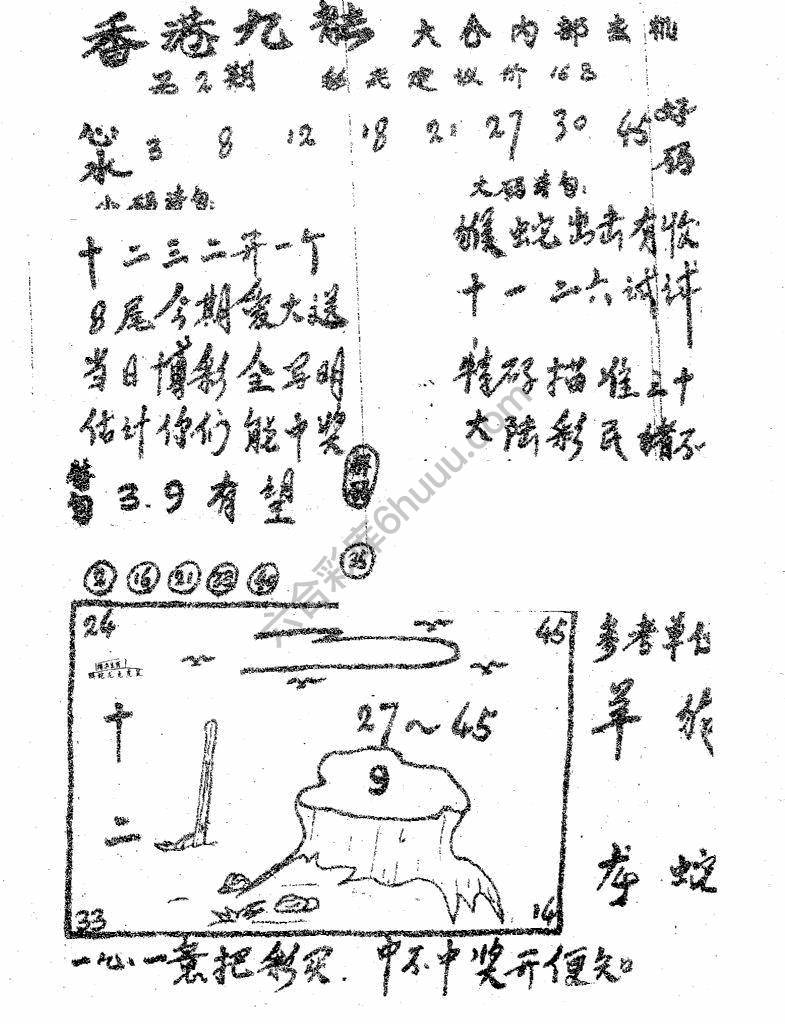 香港九龍
大会内部玄机
2期 建议价16
心水 3 8 12 18 21 27 30 45 好码
小码诗句:
十二三二开一个
8尾今期爱大送
当日博彩全写明
估计你们能中奖
大码诗句:
猴蛇出击有收
十一二六试试球
特码描准二十
大陆彩民猜不
3.9有望
35
2 16 21 40
24 45
27~45
十
9
二
33 14
参考单
羊 猴
龙 蛇
一心一意把彩买.中不中奖开便知
六合彩库6huuu.com